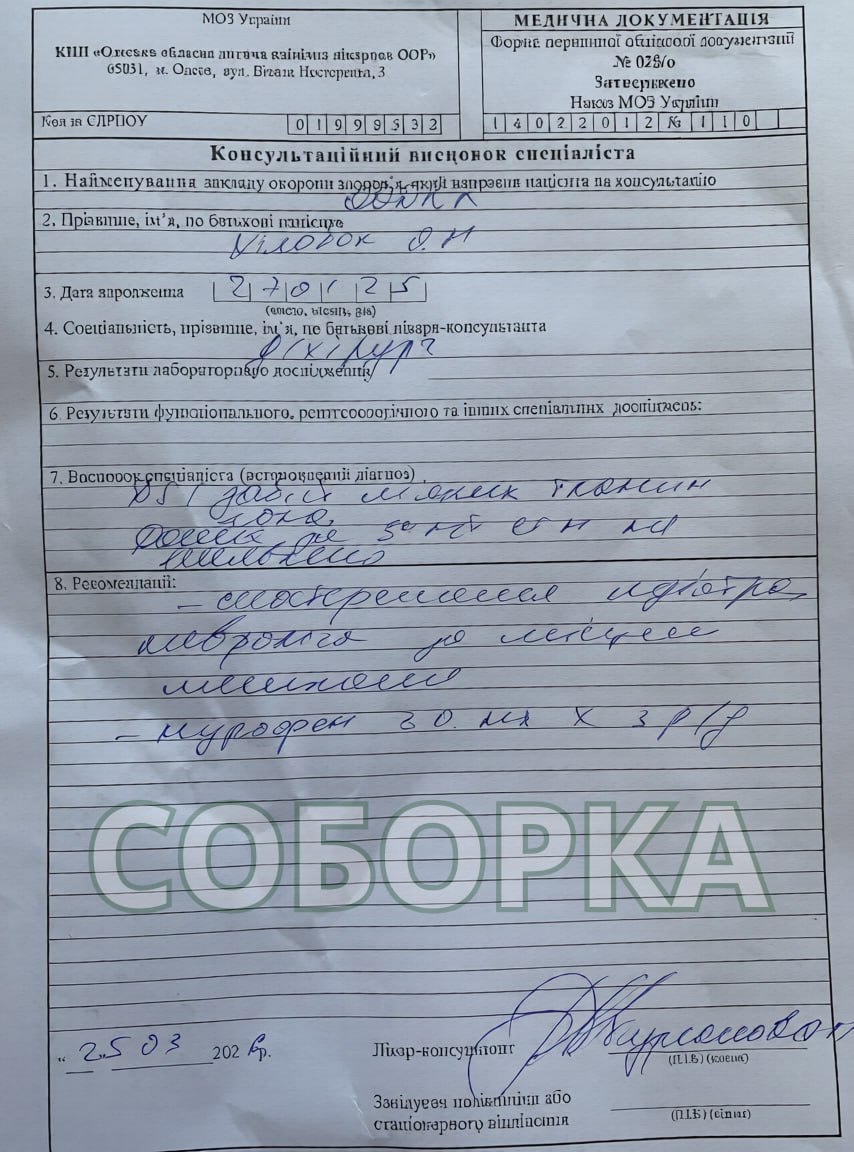 МОЗ України
КНП «Одеська обласна дитяча клінічна лікарня ООР»
65031, м. Одеса, вул. Віталія Нестеренка, 3
Код за ЄДРПОУ 01998532
МЕДИЧНА ДОКУМЕНТАЦІЯ
Форма первинної облікової документації
№ 028/о
Затверджено
Наказ МОЗ України
14022012 № 110
Консультаційний висновок спеціаліста
1. Найменування закладу охорони здоров'я, який направив пацієнта на консультацію
2. Прізвище, ім'я, по батькові пацієнта
3. Дата народження 270125
(число, місяць, рік)
4. Спеціальність, прізвище, ім'я, по батькові лікаря-консультанта
д/хірург
5. Результати лабораторного дослідження
6. Результати функціонального, рентгенологічного та інших спеціальних досліджень:
7. Висновок спеціаліста (встановлений діагноз)
DS забій мяких тканин
лоба
8. Рекомендації:
- спостереження педіатра,
невролога за місцем
мешкання
- нурофен 3 р/д
СОБОРКА
"25" 03 2026р.
Лікар-консультант
(П.І.Б.)
Завідувач поліклініки або
стаціонарного відділення
(П.І.Б.)